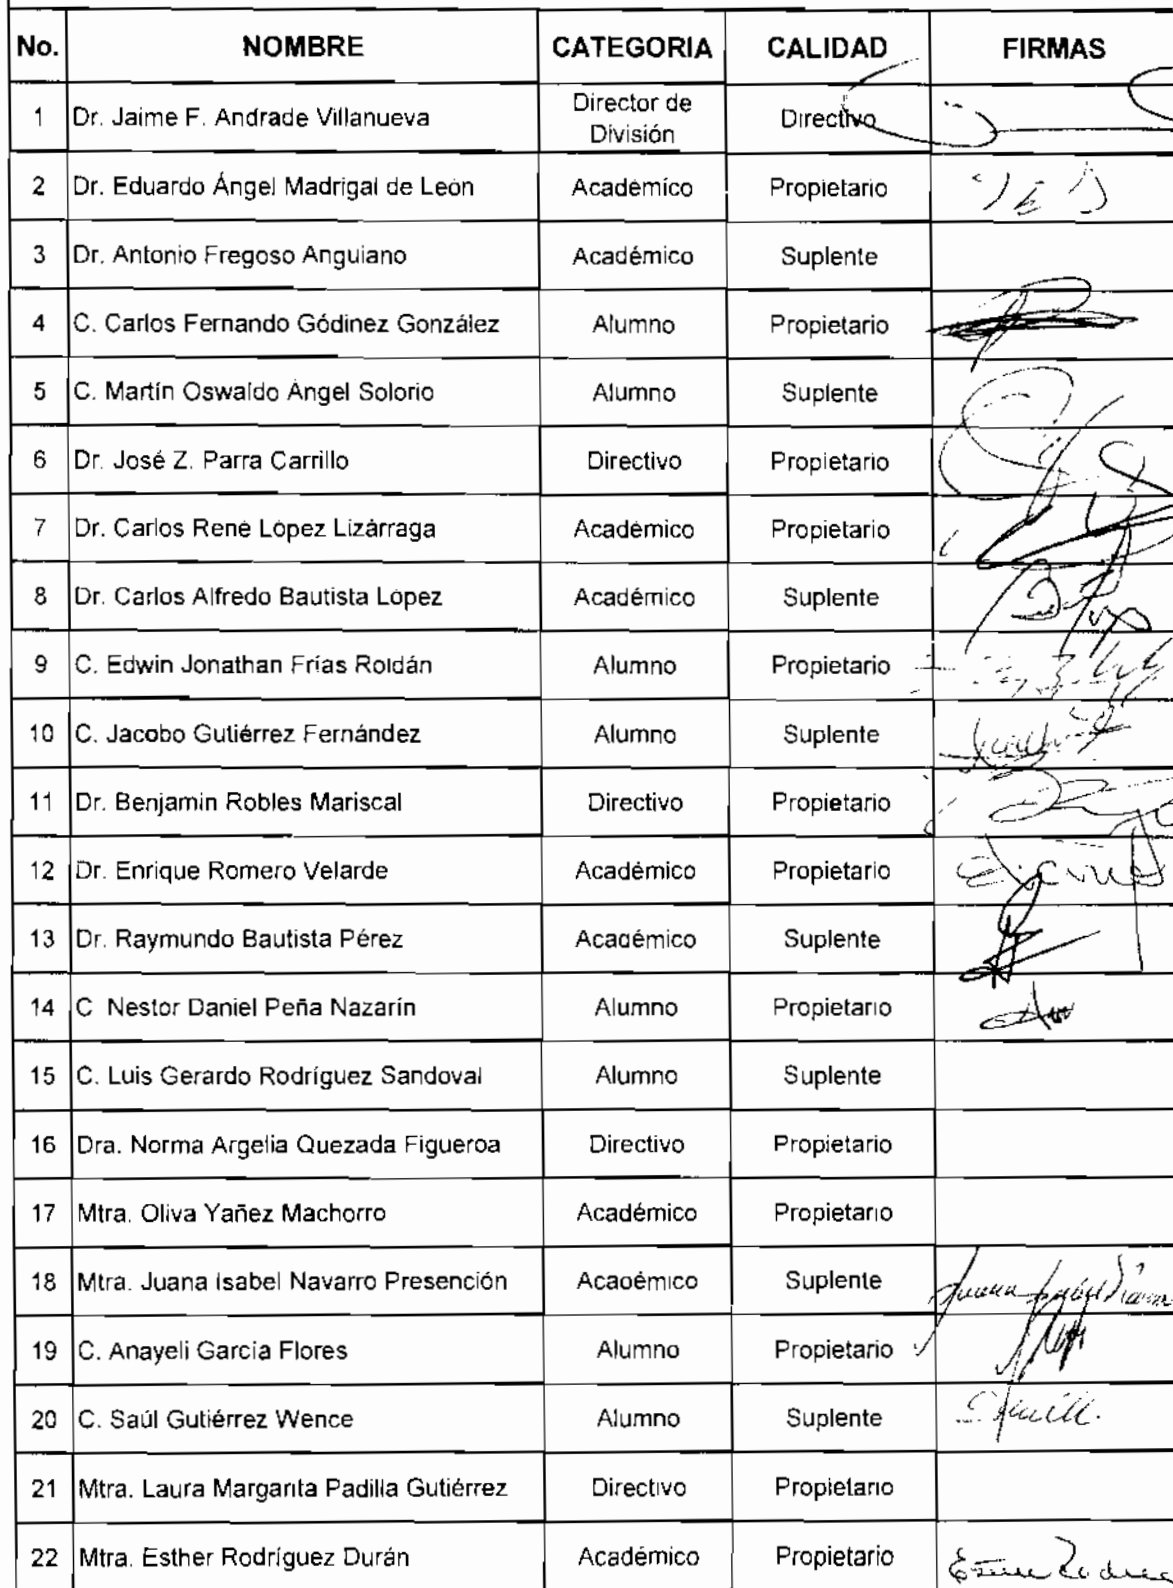 No. NOMBRE CATEGORIA CALIDAD FIRMAS
1 Dr. Jaime F. Andrade Villanueva Director de División Directivo
2 Dr. Eduardo Ángel Madrigal de León Académico Propietario
3 Dr. Antonio Fregoso Anguiano Académico Suplente
4 C. Carlos Fernando Gódinez González Alumno Propietario
5 C. Martín Oswaldo Ángel Solorio Alumno Suplente
6 Dr. José Z. Parra Carrillo Directivo Propietario
7 Dr. Carlos René López Lizárraga Académico Propietario
8 Dr. Carlos Alfredo Bautista López Académico Suplente
9 C. Edwin Jonathan Frías Roldán Alumno Propietario
10 C. Jacobo Gutiérrez Fernández Alumno Suplente
11 Dr. Benjamin Robles Mariscal Directivo Propietario
12 Dr. Enrique Romero Velarde Académico Propietario
13 Dr. Raymundo Bautista Pérez Académico Suplente
14 C Nestor Daniel Peña Nazarín Alumno Propietario
15 C. Luis Gerardo Rodríguez Sandoval Alumno Suplente
16 Dra. Norma Argelia Quezada Figueroa Directivo Propietario
17 Mtra. Oliva Yañez Machorro Académico Propietario
18 Mtra. Juana Isabel Navarro Presención Académico Suplente
19 C. Anayeli García Flores Alumno Propietario
20 C. Saúl Gutiérrez Wence Alumno Suplente
21 Mtra. Laura Margarita Padilla Gutiérrez Directivo Propietario
22 Mtra. Esther Rodríguez Durán Académico Propietario